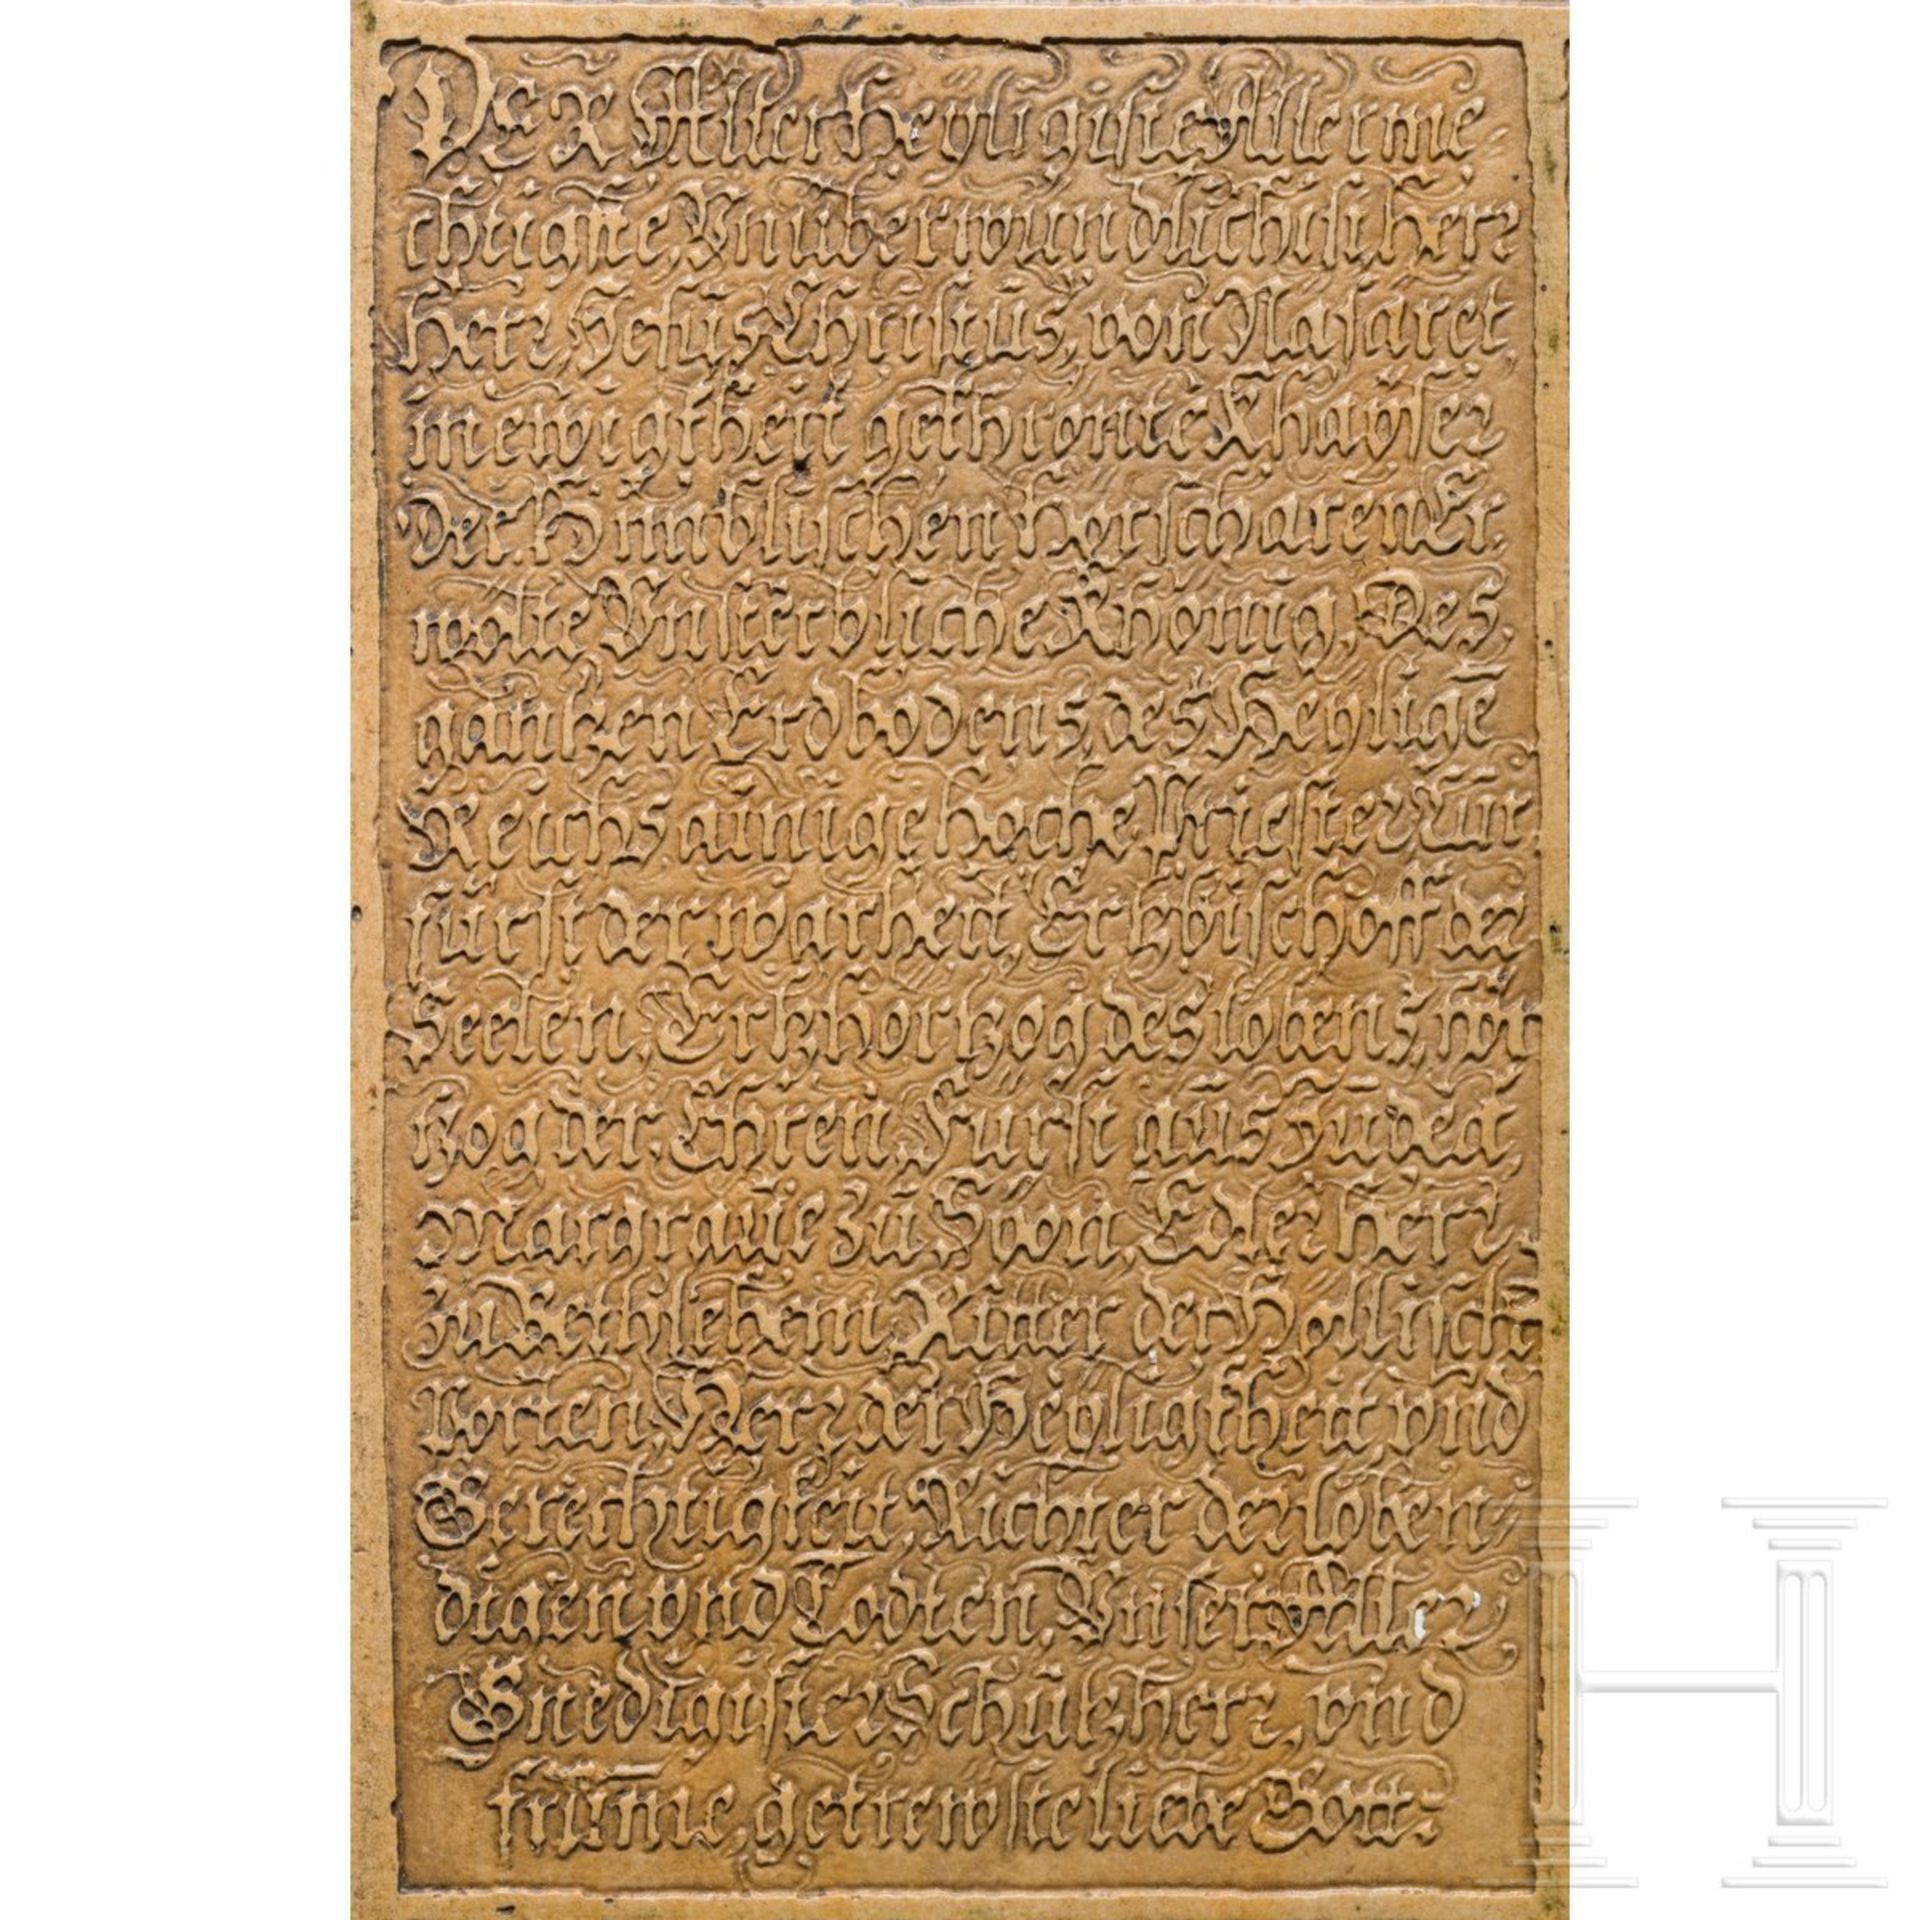 DER Allerheyligiste Allerme-
chtigste, Vnüberwündlichist, herz
herz, Jesus Christus, von Nasaret,
in ewigkheit gekhrönte Khayser
Der Himblischen Hörscharen Er-
wölte Vnsterbliche Khönig, Des
gantzen Erdbodens, des Heylige̅
Reichs ainige hoche Priester Cur-
fürst der warheit, Ertzbischoff der
Seelen, Ertzhörtzog des löbens, hör-
tzog der Ehren, Fürst aus Judea,
Margraue zu Syon, Edler herz,
zu Bethlehem, Ritter der Höllisch̅
Porten, Herz der Heyligkheit vnd
Gerechtigkeit, Richter der löben-
digen vnd Todten, Vnser Aller
Gnedigister Schützherz, vnd
frum̅e, getrewste liebe Gott.